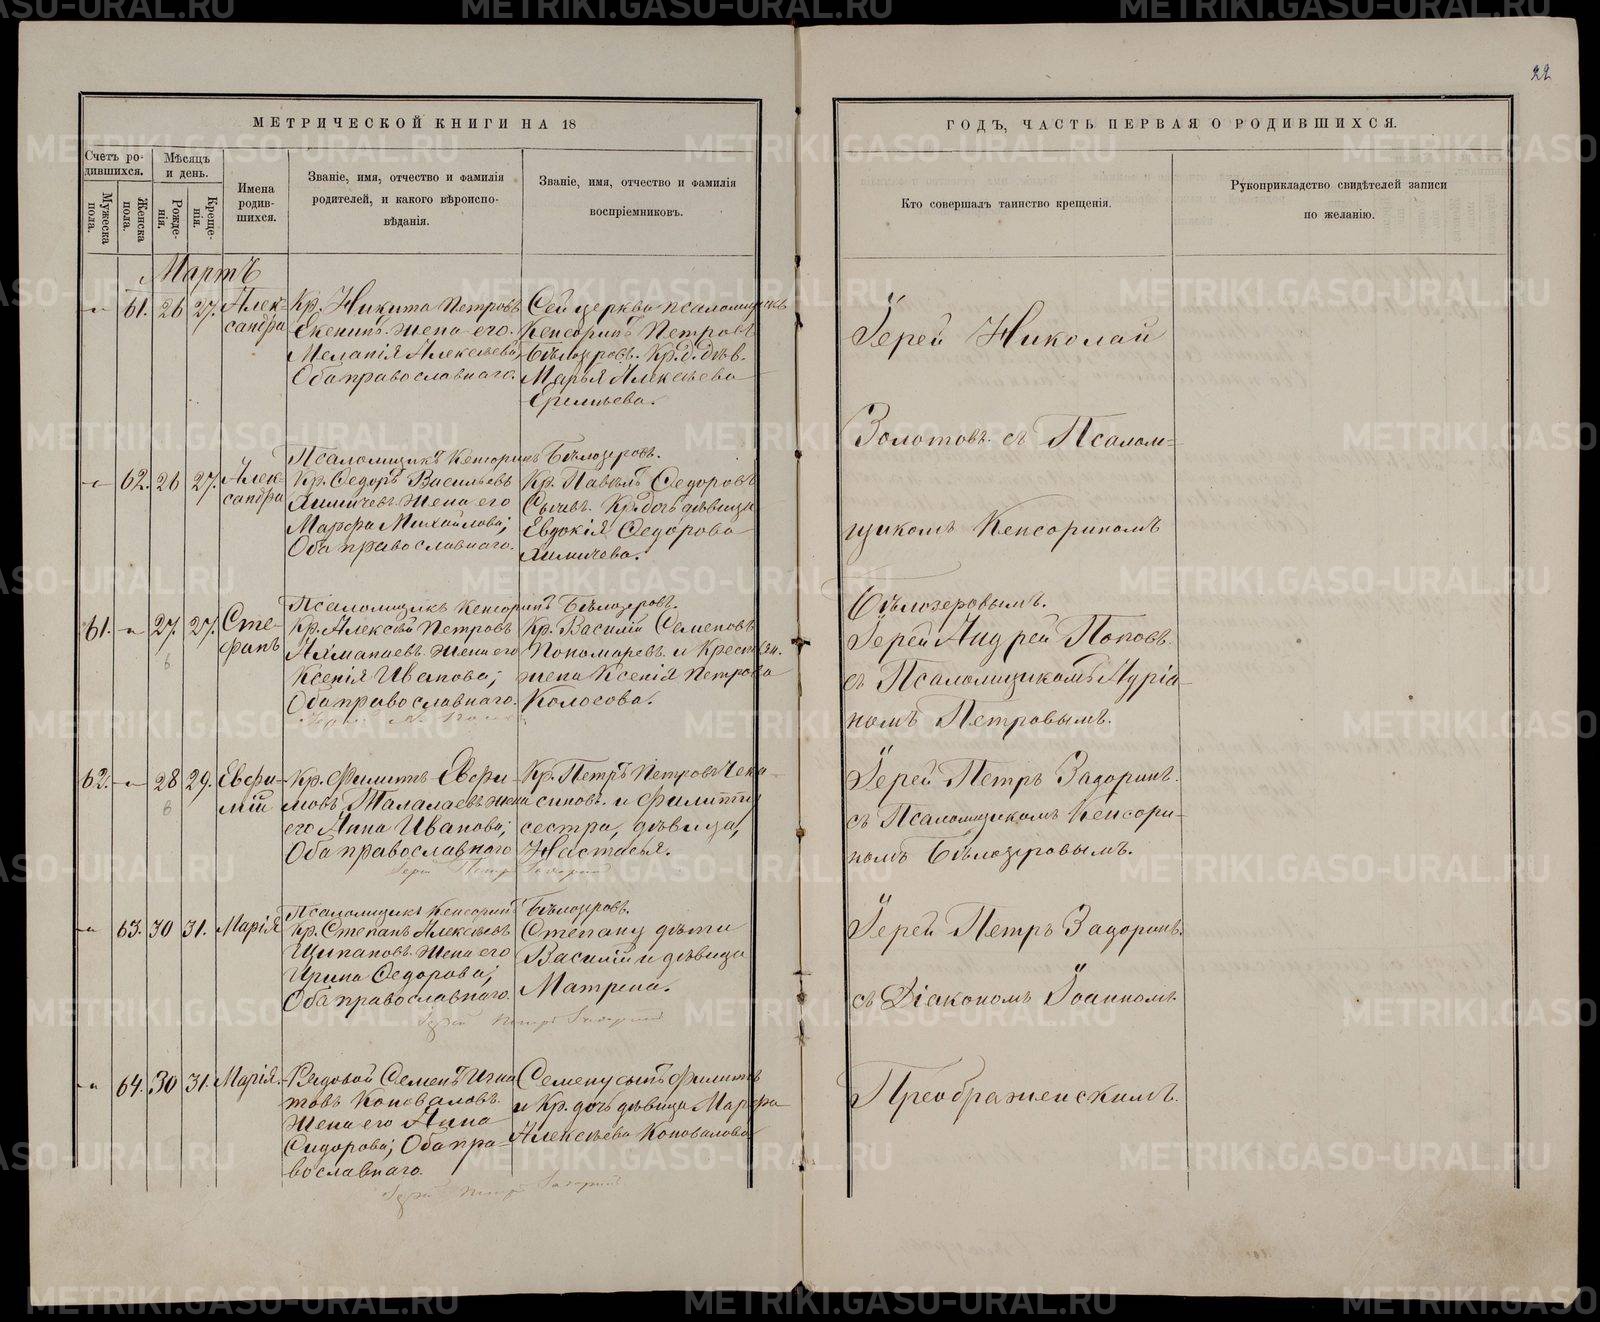 22
МЕТРИЧЕСКОЙ КНИГИ НА 18
ГОДЪ, ЧАСТЬ ПЕРВАЯ О РОДИВШИХСЯ.
Счетъ ро-
дившихся.
Мужеска
пола.
Женска
пола.
Мѣсяцъ
и день.
Рожде-
нія.
Креще-
нія.
Имена
родив-
шихся.
Званіе, имя, отчество и фамилія
родителей, и какого вѣроиспо-
вѣданія.
Званіе, имя, отчество и фамилія
воспріемниковъ.
Кто совершалъ таинство крещенія.
Рукоприкладство свидѣтелей записи
по желанію.
Мартъ
61. 26 27. Алек-
сандра
Кр. Никита Петровъ
жена его.
Меланія Алексѣева;
Оба православнаго.
Сей церкви псаломщикъ
Кенсоринъ Петровъ
Бѣлозеровъ. Кр. д. дѣв.
Марья Алексѣева
Іерей Николай
Золотовъ. съ Псалом-
щикомъ Кенсориномъ
Бѣлозеровымъ.
Псаломщикъ Кенсоринъ Бѣлозеровъ.
62. 26 27. Алек-
сандра
Кр. Ѳедоръ Васильевъ
Жена его
Марфа Михайлова;
Оба православнаго.
Кр. Павелъ Ѳедоровъ
Сычевъ. Кр. дочь дѣвица
Евдокія Ѳедорова
Псаломщикъ Кенсоринъ Бѣлозеровъ.
61. 27. 27. Сте-
фанъ
Кр. Алексѣй Петровъ
Жена его
Ксенія Иванова;
Оба православнаго.
Кр. Василій Семеновъ
Пономаревъ. и Крестьян.
жена Ксенія Петрова
Колосова.
Іерей Андрей Поповъ.
съ Псаломщикомъ Адріа-
номъ Петровымъ.
62. 28 29. Евфи-
мій
Кр. Филиппъ Евфи-
мовъ Талалаевъ жена
его Анна Иванова;
Оба православнаго
Кр. Петръ Петровъ Чека-
синовъ. и Филиппу
сестра, дѣвица,
Настасья.
Іерей Петръ Задоринъ.
съ Псаломщикомъ Кенсори-
номъ Бѣлозеровымъ.
Іерей Петръ Задоринъ
Псаломщикъ Кенсоринъ Бѣлозеровъ.
63. 30 31. Марія
Кр. Степанъ Алексѣевъ
Щипановъ. Жена его
Ирина Ѳедорова;
Оба православнаго.
Степану дѣти
Василій и дѣвица
Матрена.
Іерей Петръ Задоринъ.
съ Діакономъ Іоанномъ
Преображенскимъ.
Іерей Петръ Задоринъ
64. 30 31. Марія.
Рядовой Семенъ Игна
товъ Коноваловъ.
Жена его Анна
Сидорова; Оба пра-
вославнаго.
Семену сынъ Филиппъ
и Кр. дочь дѣвица Марфа
Алексѣева Коновалова
Іерей Петръ Задоринъ
METRIKI.GASO-URAL.RU